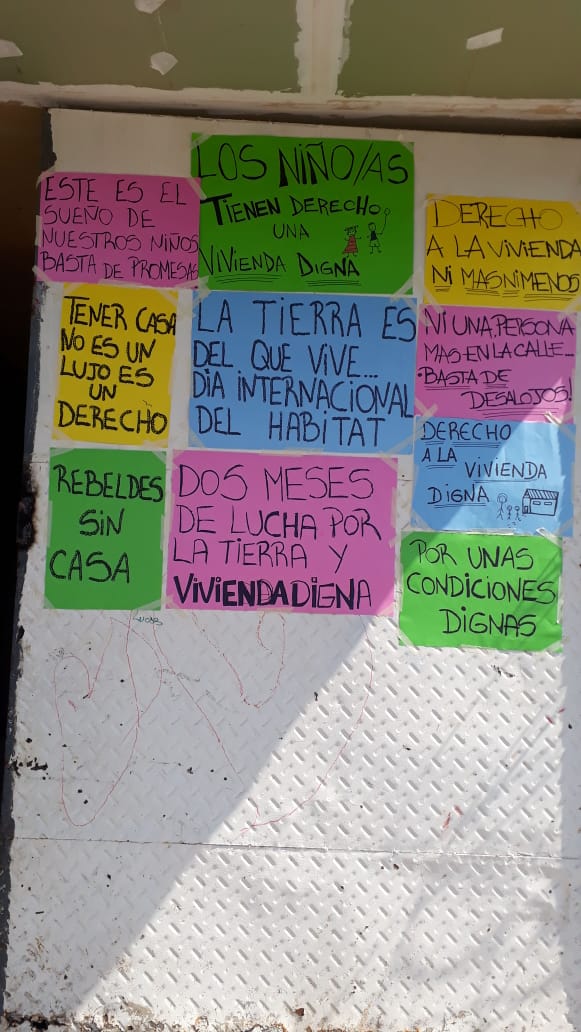 ESTE ES EL
SUEÑO DE
NUESTROS NIÑOS
BASTA DE PROMESAS
LOS NIÑO/AS
TIENEN DERECHO
UNA
VIVIENDA DIGNA
DERECHO
A LA VIVIENDA
NI MAS NI MENOS
TENER CASA
NO ES UN
LUJO ES
UN
DERECHO
LA TIERRA ES
DEL QUE VIVE...
DIA INTERNACIONAL
DEL HABITAT
NI UNA PERSONA
MAS EN LA CALLE...
BASTA DE
DESALOJOS!
DERECHO
A LA VIVIENDA
DIGNA
REBELDES
SIN
CASA
DOS MESES
DE LUCHA POR
LA TIERRA Y
VIVIENDA DIGNA
POR UNAS
CONDICIONES
DIGNAS